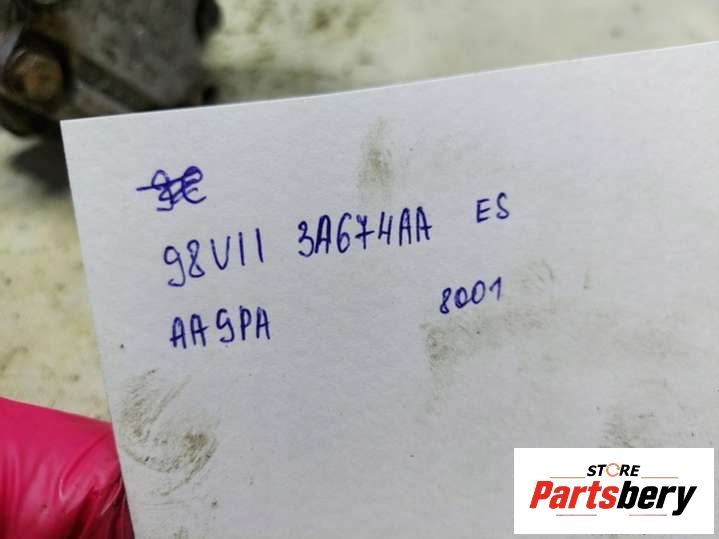 98VII 3A674AA ES
AA9PA 8001
STORE
Partsbery